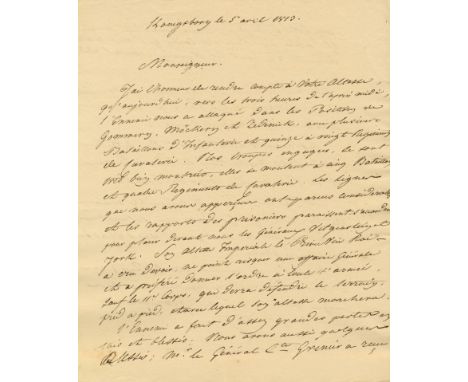 Konigsborg le 5 avril 1813.
Monseigneur.
J'ai l'honneur de rendre compte à Votre Altesse,
qu'aujourd'hui, vers les trois heures de l'après midi
l'Ennemi nous a attaqué dans les Positions de
Gommern, Möckern et Zedenick, avec plusieurs
Bataillons d'Infanterie et quinze à vingt Regimens
de Cavalerie. Nos troupes engagées, se sont
très bien montrées, elles se montent à cinq Bataillons
et quatre Regimens de Cavalerie. Les lignes
que nous avons apperçues ont parues considerables
et les rapports des prisoniers paraissent s'accorder
pour placer devant nous les Généraux Witgenstein, et
York. Son Altesse Imperiale le Prince Vice Roi
a cru devoir ne point risquer une affaire Générale
et a préféré donner l'ordre à toute l'armée
sauf le 11e Corps, qui devra défendre le terrain,
pied à pied, et avec lequel Son Altesse marchera.
L'Ennemi a fait d'assez grandes pertes en
tués et blessés. Nous avons aussi quelques
Blessés; Mr. le Général Cte Grenier a reçu